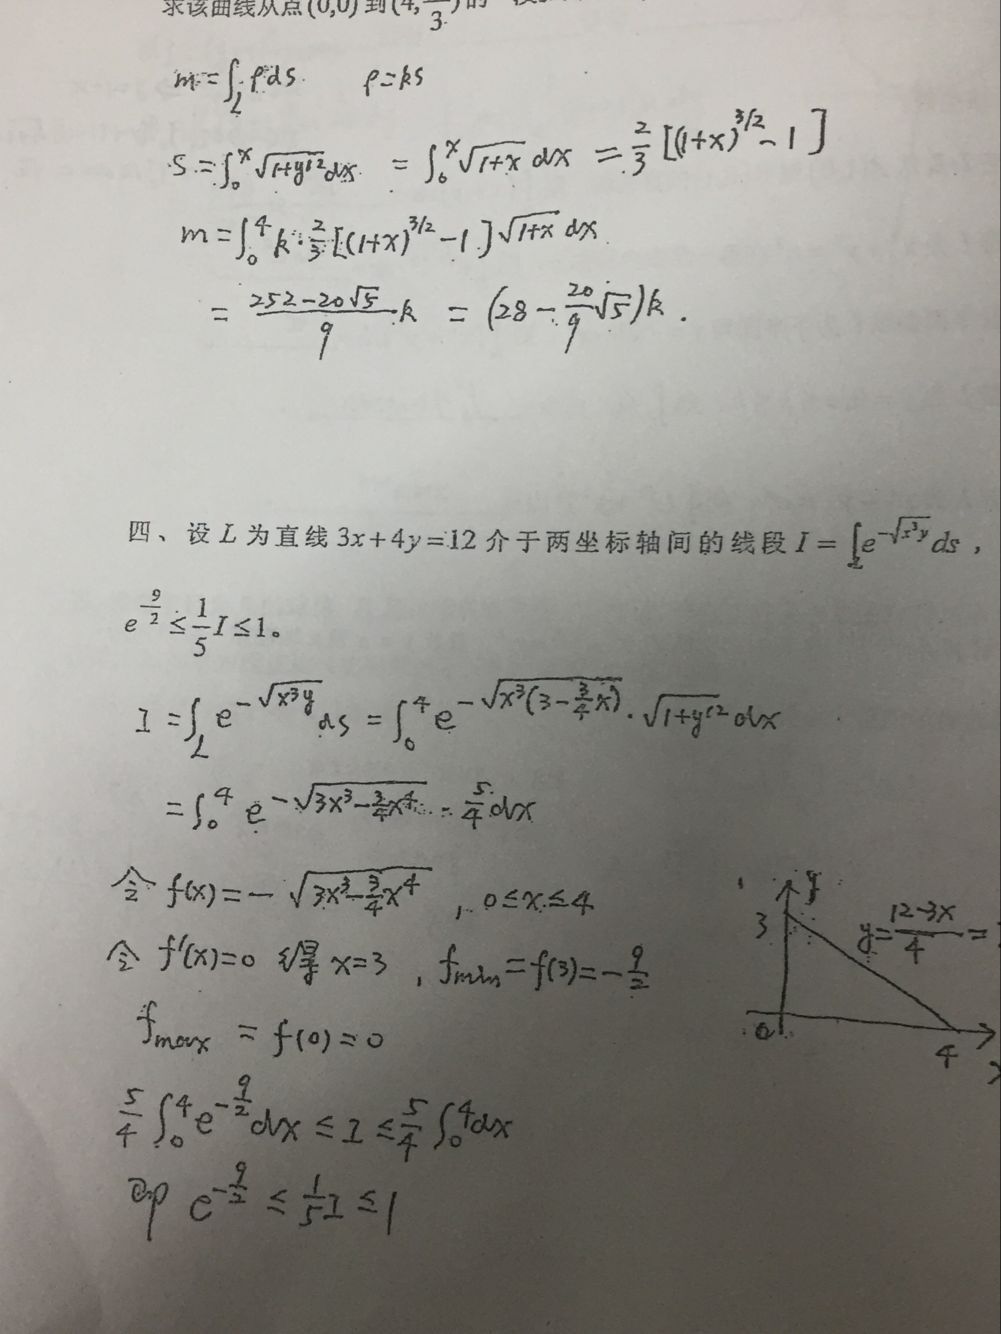 求该曲线从点(0,0)到(4, /3)的一段
m=∫_L ρds  ρ=ks
s=∫_0^x √(1+y'^2) dx = ∫_0^x √(1+x) dx = 2/3 [(1+x)^{3/2} - 1]
m=∫_0^4 k·2/3 [(1+x)^{3/2} - 1] √(1+x) dx
= (252-20√5)/9 k = (28 - 20/9 √5)k .
四、设 L 为直线 3x+4y=12 介于两坐标轴间的线段 I = ∫_L e^{-√(x³y)} ds ,
e^{-9/2} ≤ 1/5 I ≤ 1。
I = ∫_L e^{-√(x³y)} ds = ∫_0^4 e^{-√(x³(3-3/4 x))} · √(1+y'^2) dx
= ∫_0^4 e^{-√(3x³-3/4 x⁴)} · 5/4 dx
令 f(x) = - √(3x³-3/4 x⁴) , 0≤x≤4
令 f'(x)=0 得 x=3 , f_min = f(3) = -9/2
f_max = f(0) = 0
5/4 ∫_0^4 e^{-9/2} dx ≤ I ≤ 5/4 ∫_0^4 dx
即 e^{-9/2} ≤ 1/5 I ≤ 1
y
3
y = (12-3x)/4 =
0
4
x